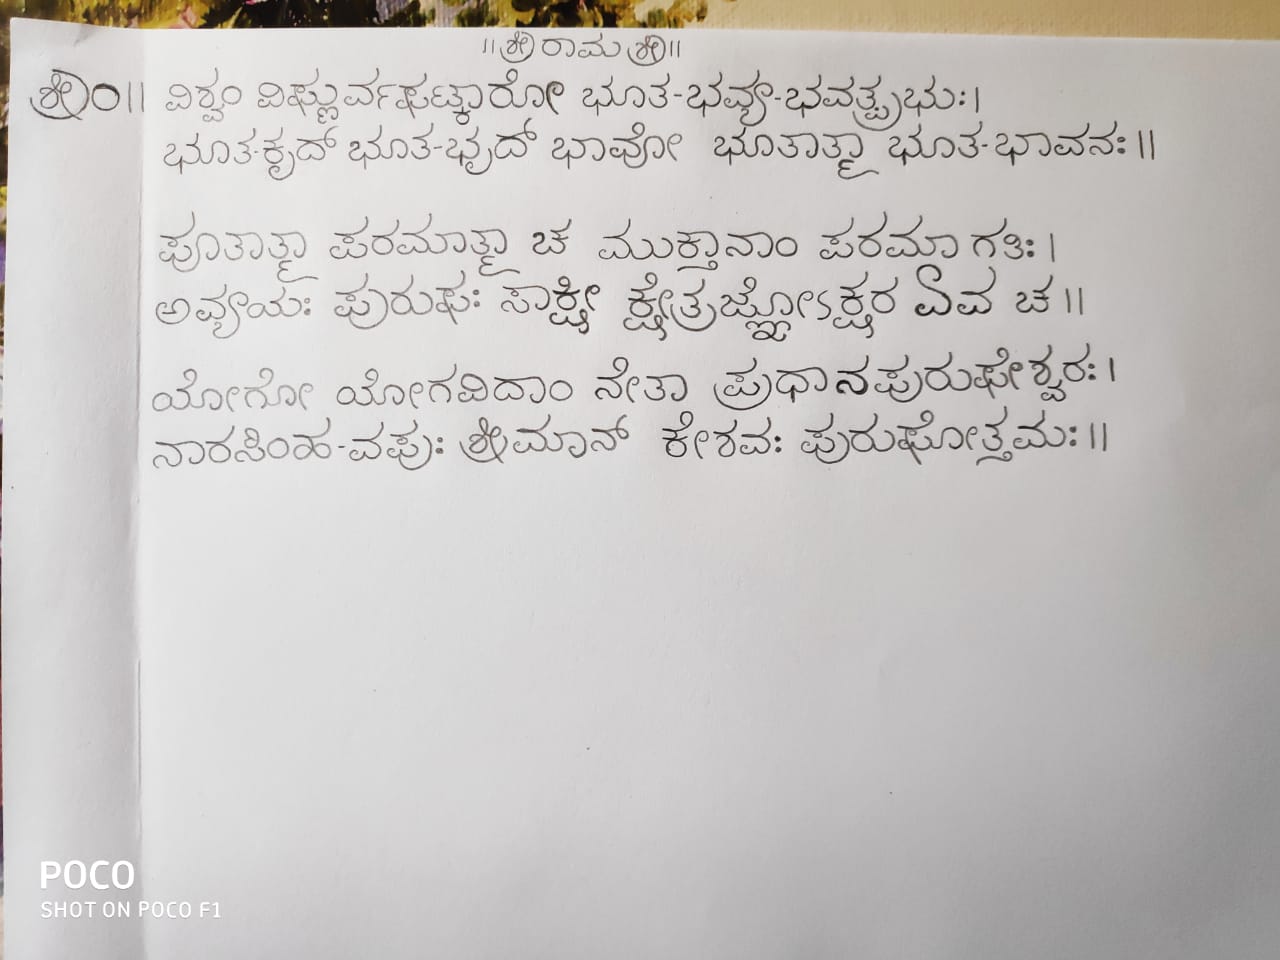 ॥ಶ್ರೀ ರಾಮ ಶ್ರೀ॥
ಶ್ರೀಂ॥ ವಿಶ್ವಂ ವಿಷ್ಣುರ್ವಷಟ್ಕಾರೋ ಭೂತ-ಭವ್ಯ-ಭವತ್ಪ್ರಭುಃ।
ಭೂತ-ಕೃದ್ ಭೂತ-ಭೃದ್ ಭಾವೋ ಭೂತಾತ್ಮಾ ಭೂತ-ಭಾವನಃ॥
ಪೂತಾತ್ಮಾ ಪರಮಾತ್ಮಾ ಚ ಮುಕ್ತಾನಾಂ ಪರಮಾ ಗತಿಃ।
ಅವ್ಯಯಃ ಪುರುಷಃ ಸಾಕ್ಷೀ ಕ್ಷೇತ್ರಜ್ಞೋಽಕ್ಷರ ಏವ ಚ॥
ಯೋಗೋ ಯೋಗವಿದಾಂ ನೇತಾ ಪ್ರಧಾನಪುರುಷೇಶ್ವರಃ।
ನಾರಸಿಂಹ-ವಪುಃ ಶ್ರೀಮಾನ್ ಕೇಶವಃ ಪುರುಷೋತ್ತಮಃ॥
POCO
SHOT ON POCO F1